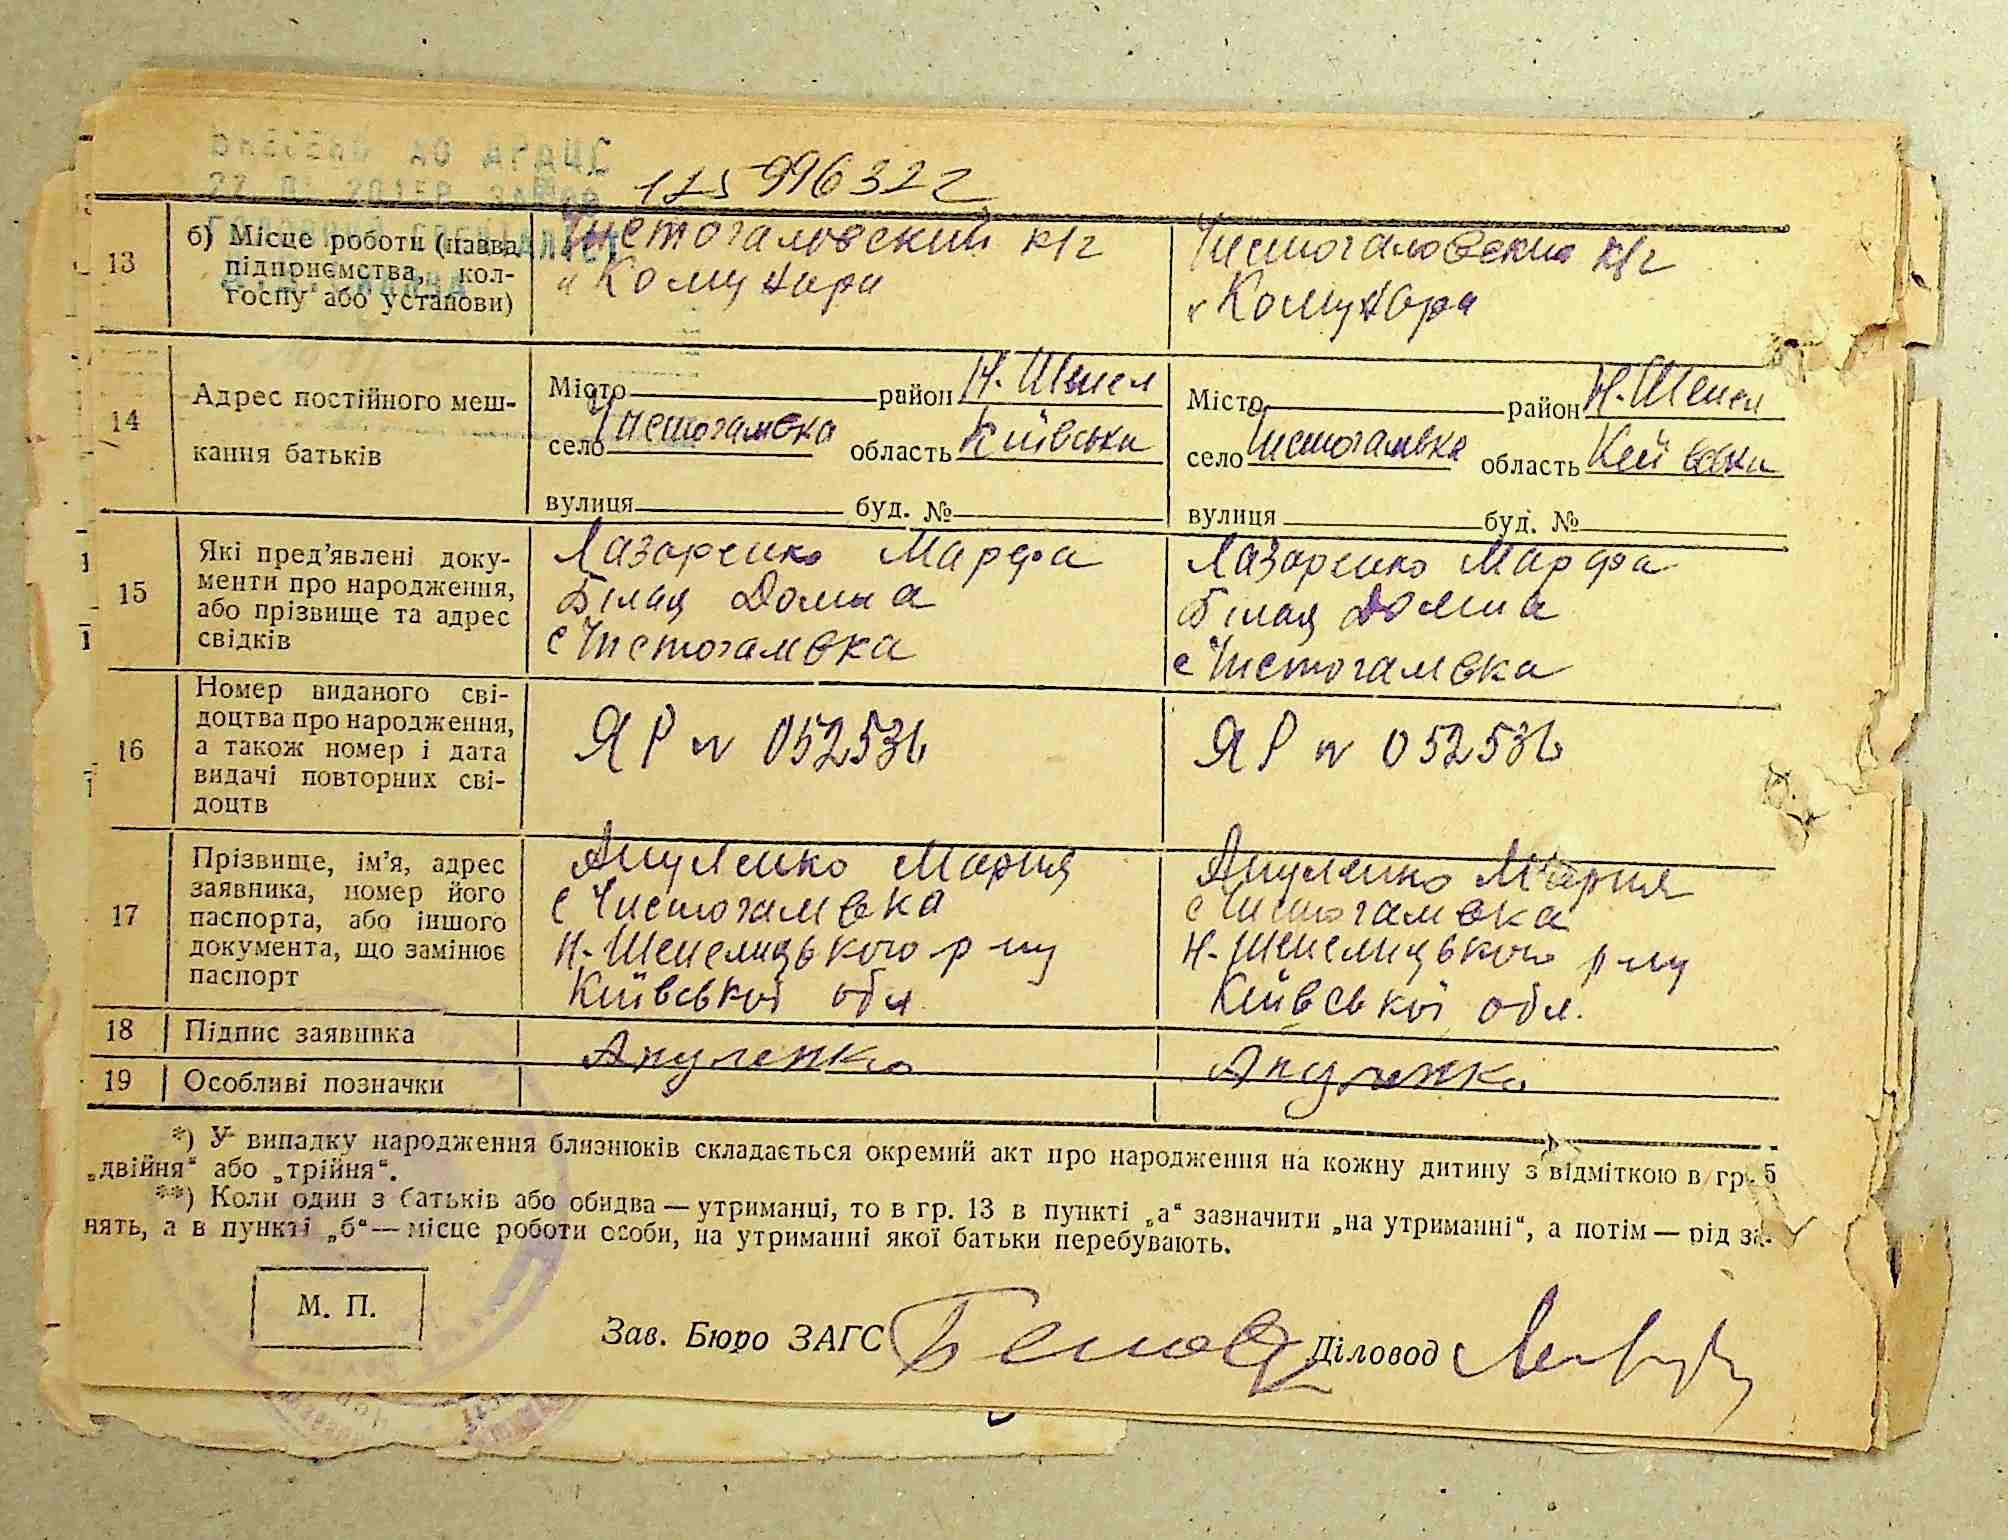 ВНЕСЕНО ДО ДРАЦС
175996322
13
б) Місце роботи (назва підприємства, колгоспу або установи)
Чистогаловский к/г
"Комунари
Чистогаловский к/г
"Комунари
14
Адрес постійного мешкання батьків
Місто район Н. Шепел
село Чистогаловка область Київська
вулиця буд. №
Місто район Н. Шепел
село Чистогаловка область
вулиця буд. №
15
Які пред'явлені документи про народження, або прізвище та адрес свідків
Лазаренко Марфа
Білая Домна
с Чистогаловка
Лазаренко Марфа
Білая Домна
с Чистогаловка
16
Номер виданого свідоцтва про народження, а також номер і дата видачі повторних свідоцтв
ЯР № 052536
ЯР № 052536
17
Прізвище, ім'я, адрес заявника, номер його паспорта, або іншого документа, що замінює паспорт
Апуленко Мария
с Чистогаловка
Н-Шепелицького р-ну
Київської обл.
Апуленко Мария
с Чистогаловка
Н-Шепелицького р-ну
Київської обл.
18
Підпис заявника
Апуленко
Апуленко
19
Особливі позначки
*) У випадку народження близнюків складається окремий акт про народження на кожну дитину з відміткою в гр. 5
„двійня“ або „трійня“.
**) Коли один з батьків або обидва — утриманці, то в гр. 13 в пункті „а“ зазначити „на утриманні“, а потім — рід за-
нять, а в пункті „б“ — місце роботи особи, на утриманні якої батьки перебувають.
М. П.
Зав. Бюро ЗАГС
Діловод